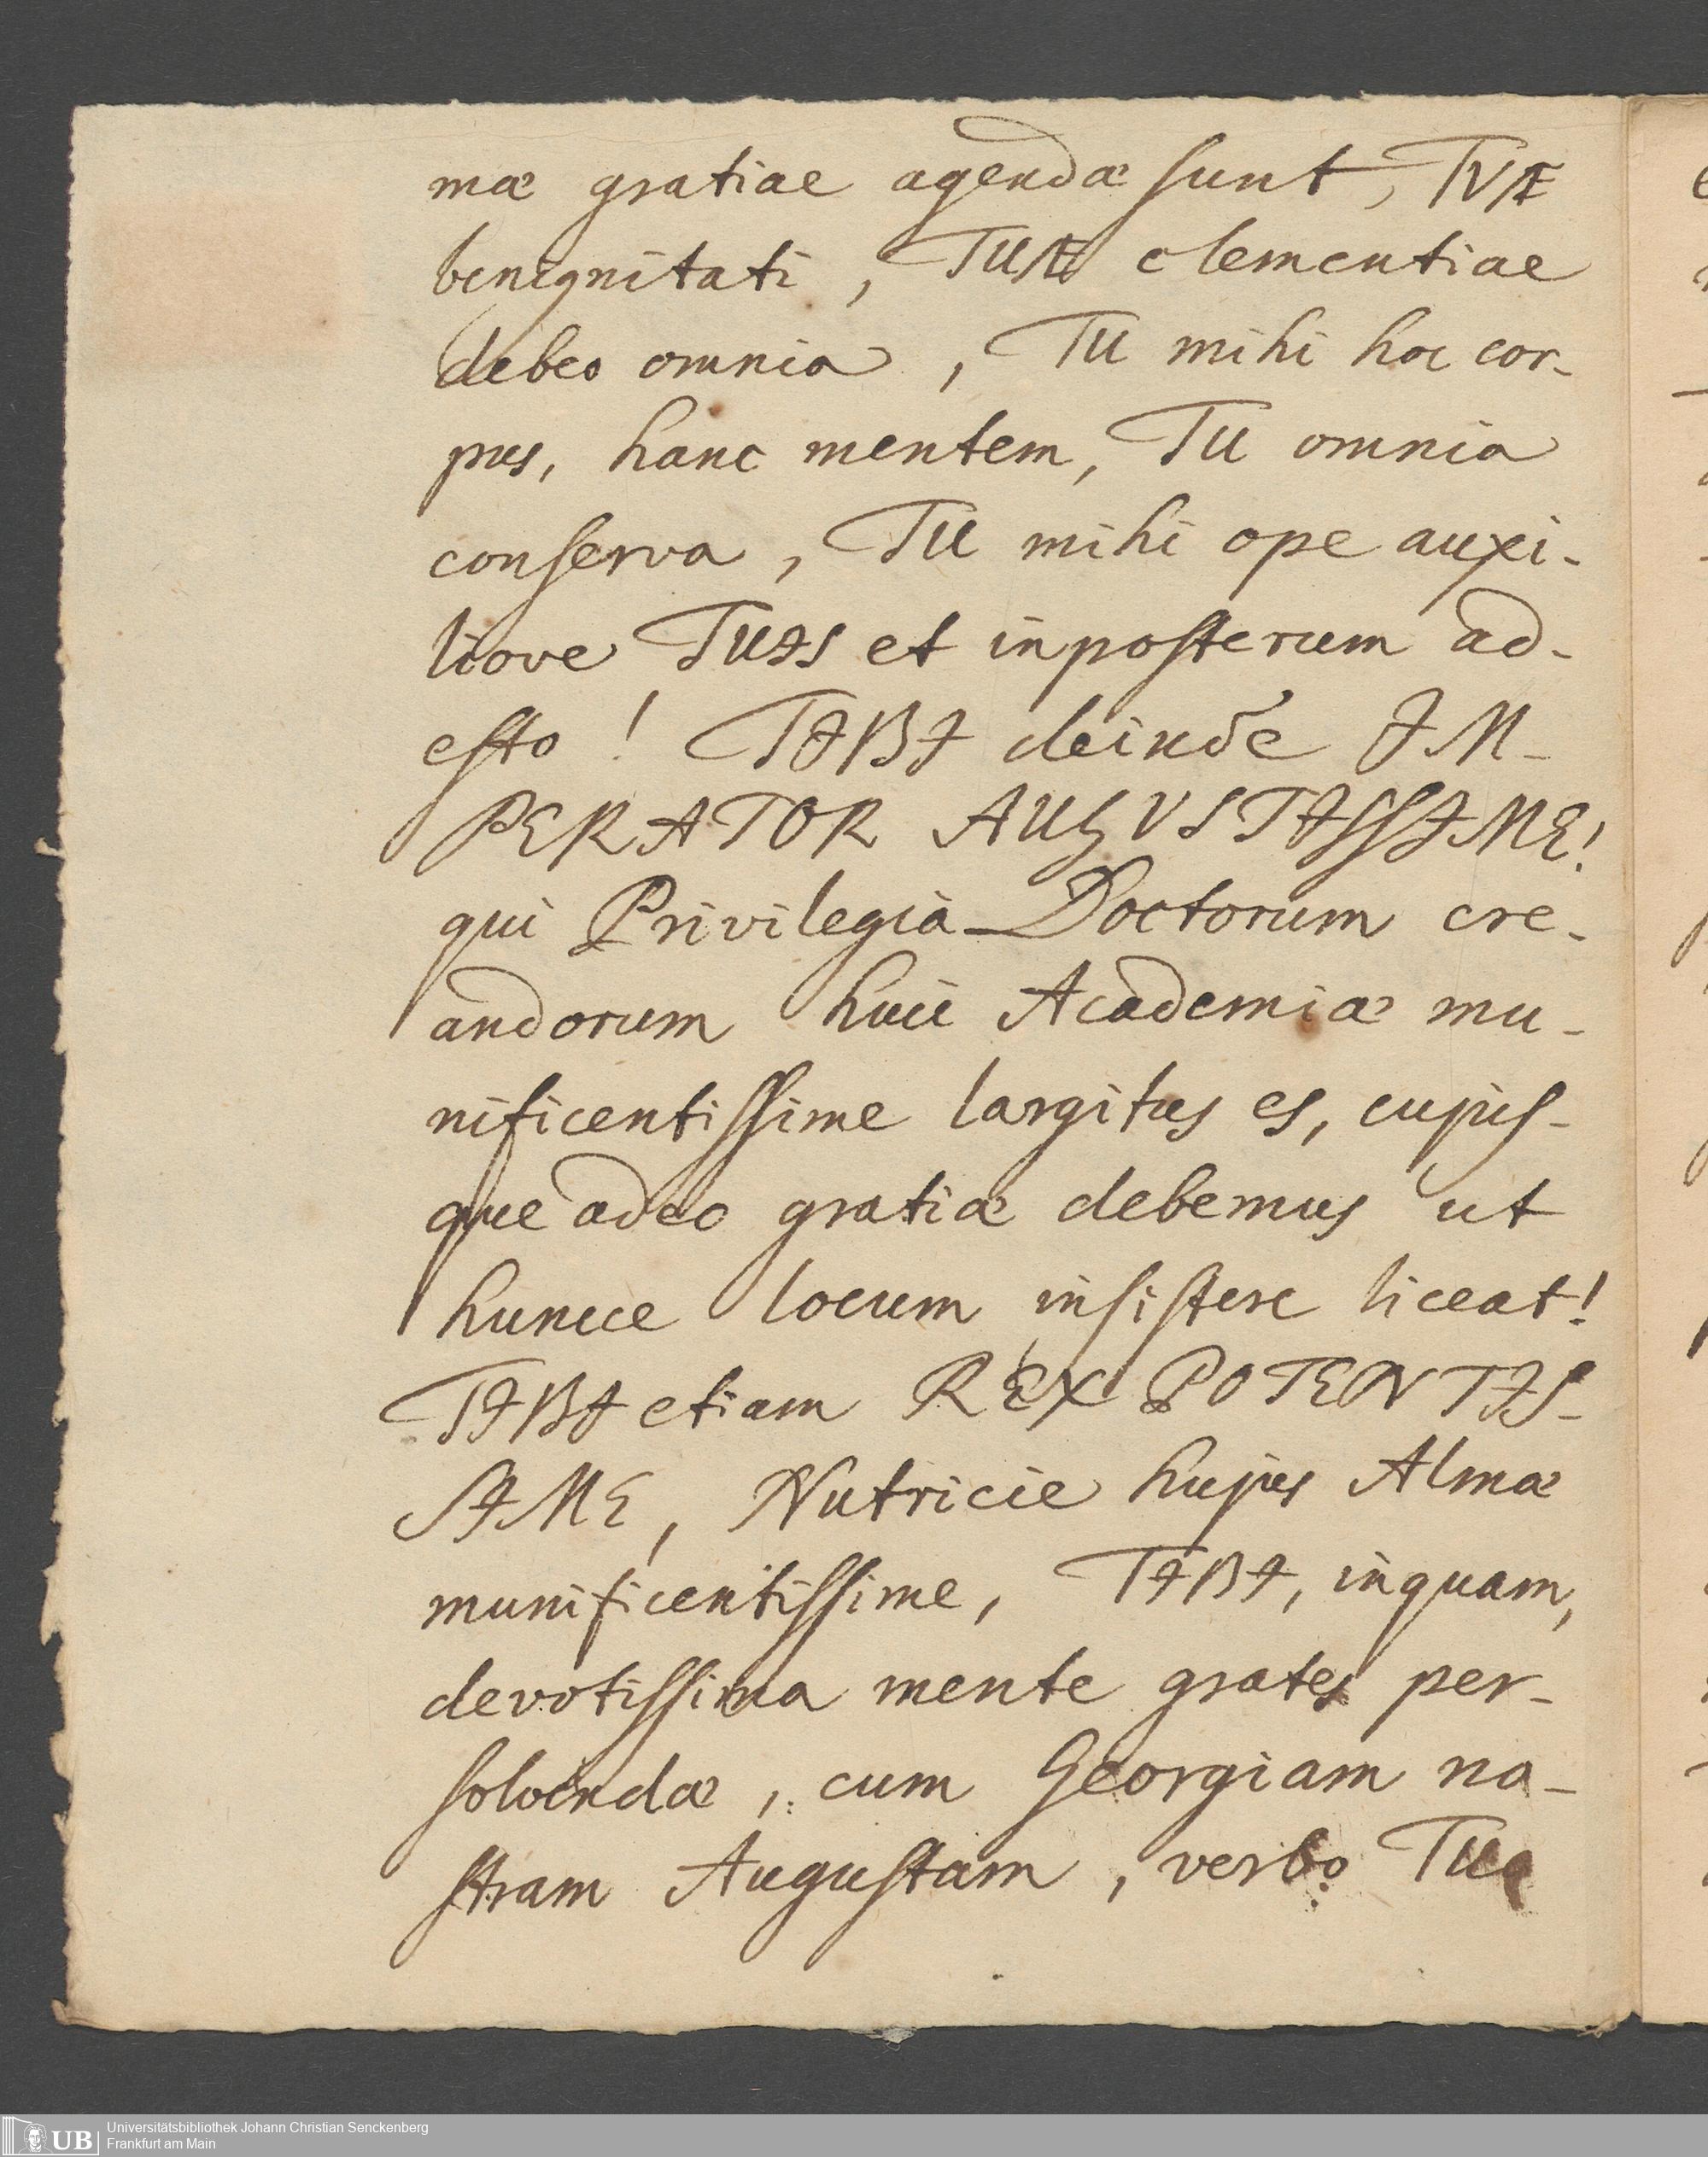 mæ gratiae agendæ sunt, TVÆ
benignitati, TUÆ clementiae
debeo omnia, TU mihi hoc cor-
pus, hanc mentem, TU omnia
conserva, TU mihi ope auxi-
liove TUIS et inposterum ad-
esto! TIBI deinde IM-
PERATOR AUGVSTISSIME!
qui Privilegia Doctorum cre-
andorum huic Academiæ mu-
nificentissime largitus es, cujus-
que adeo gratiæ debemus ut
hunce locum insistere liceat!
TIBI etiam REX POTENTIS-
SIME, Nutricie hujus Almæ
munificentissime, TIBI, inquam,
devotissima mente grates per-
solvendæ, cum Georgiam no-
stram Augustam, verbo Tuo
Universitätsbibliothek Johann Christian Senckenberg
Frankfurt am Main
UB